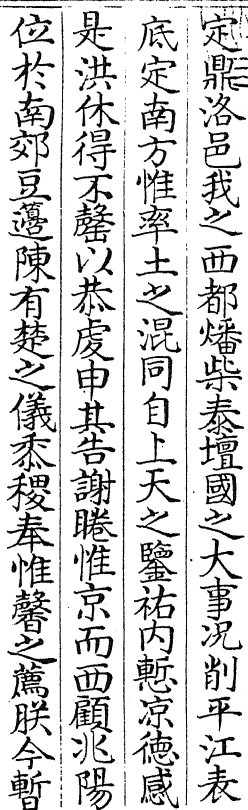 定鼎洛邑我之西都燔柴泰壇國之大事况削平江表
底定南方惟率土之混同自上天之鑒祐内慙凉德感
是洪休得不罄以恭虔申其告謝睠惟京而西顧兆陽
位於南郊豆籩陳有楚之儀黍稷奉惟馨之薦朕今暫